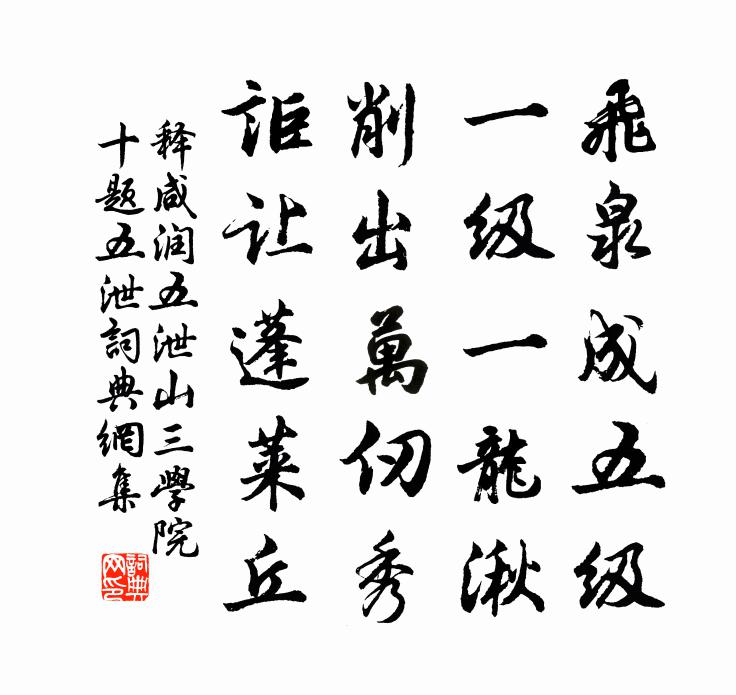 飛泉成五级
一级一龍湫
削出萬仞秀
詎让蓬莱丘
释咸润五泄山三學院
十题五泄詞典網集
詞典网印